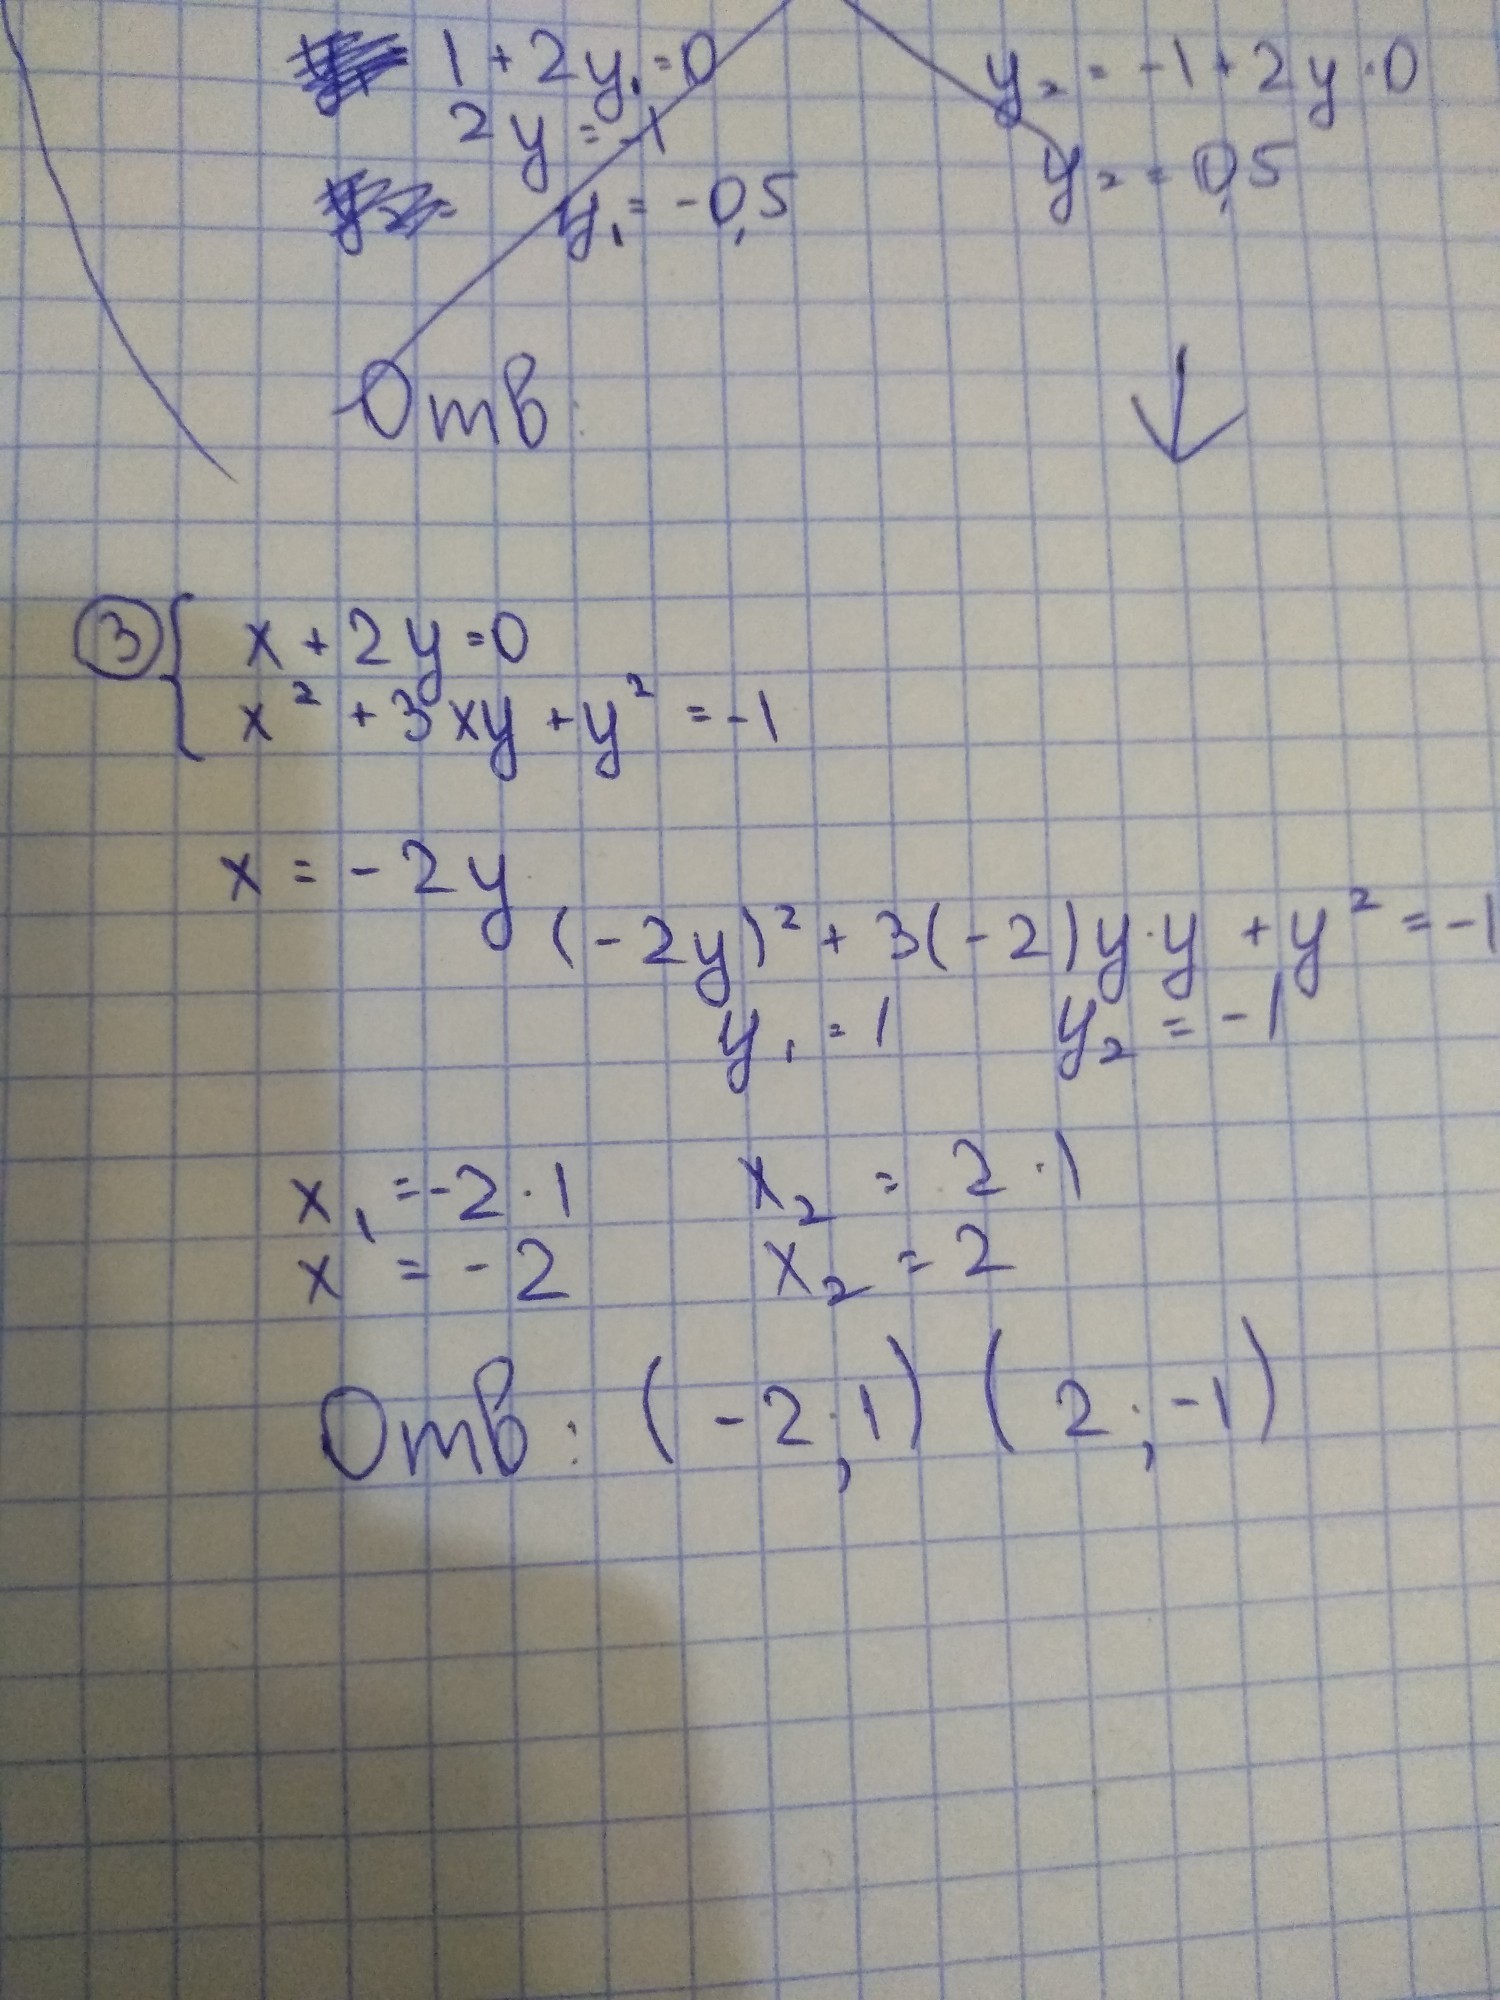 1 + 2y₁ = 0
y₂ = -1 + 2y = 0
2y = -1
y₁ = -0,5
y₂ = 0,5
Отв:
③ { x + 2y = 0
x² + 3xy + y² = -1
x = -2y
(-2y)² + 3(-2)y·y + y² = -1
y₁ = 1 y₂ = -1
x₁ = -2·1 x₂ = 2·1
x = -2 x₂ = 2
Отв: (-2; 1) (2; -1)